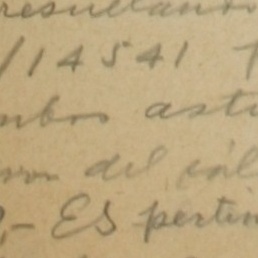 resultando
/14541
mbos astu
del cál
,- ES pertin